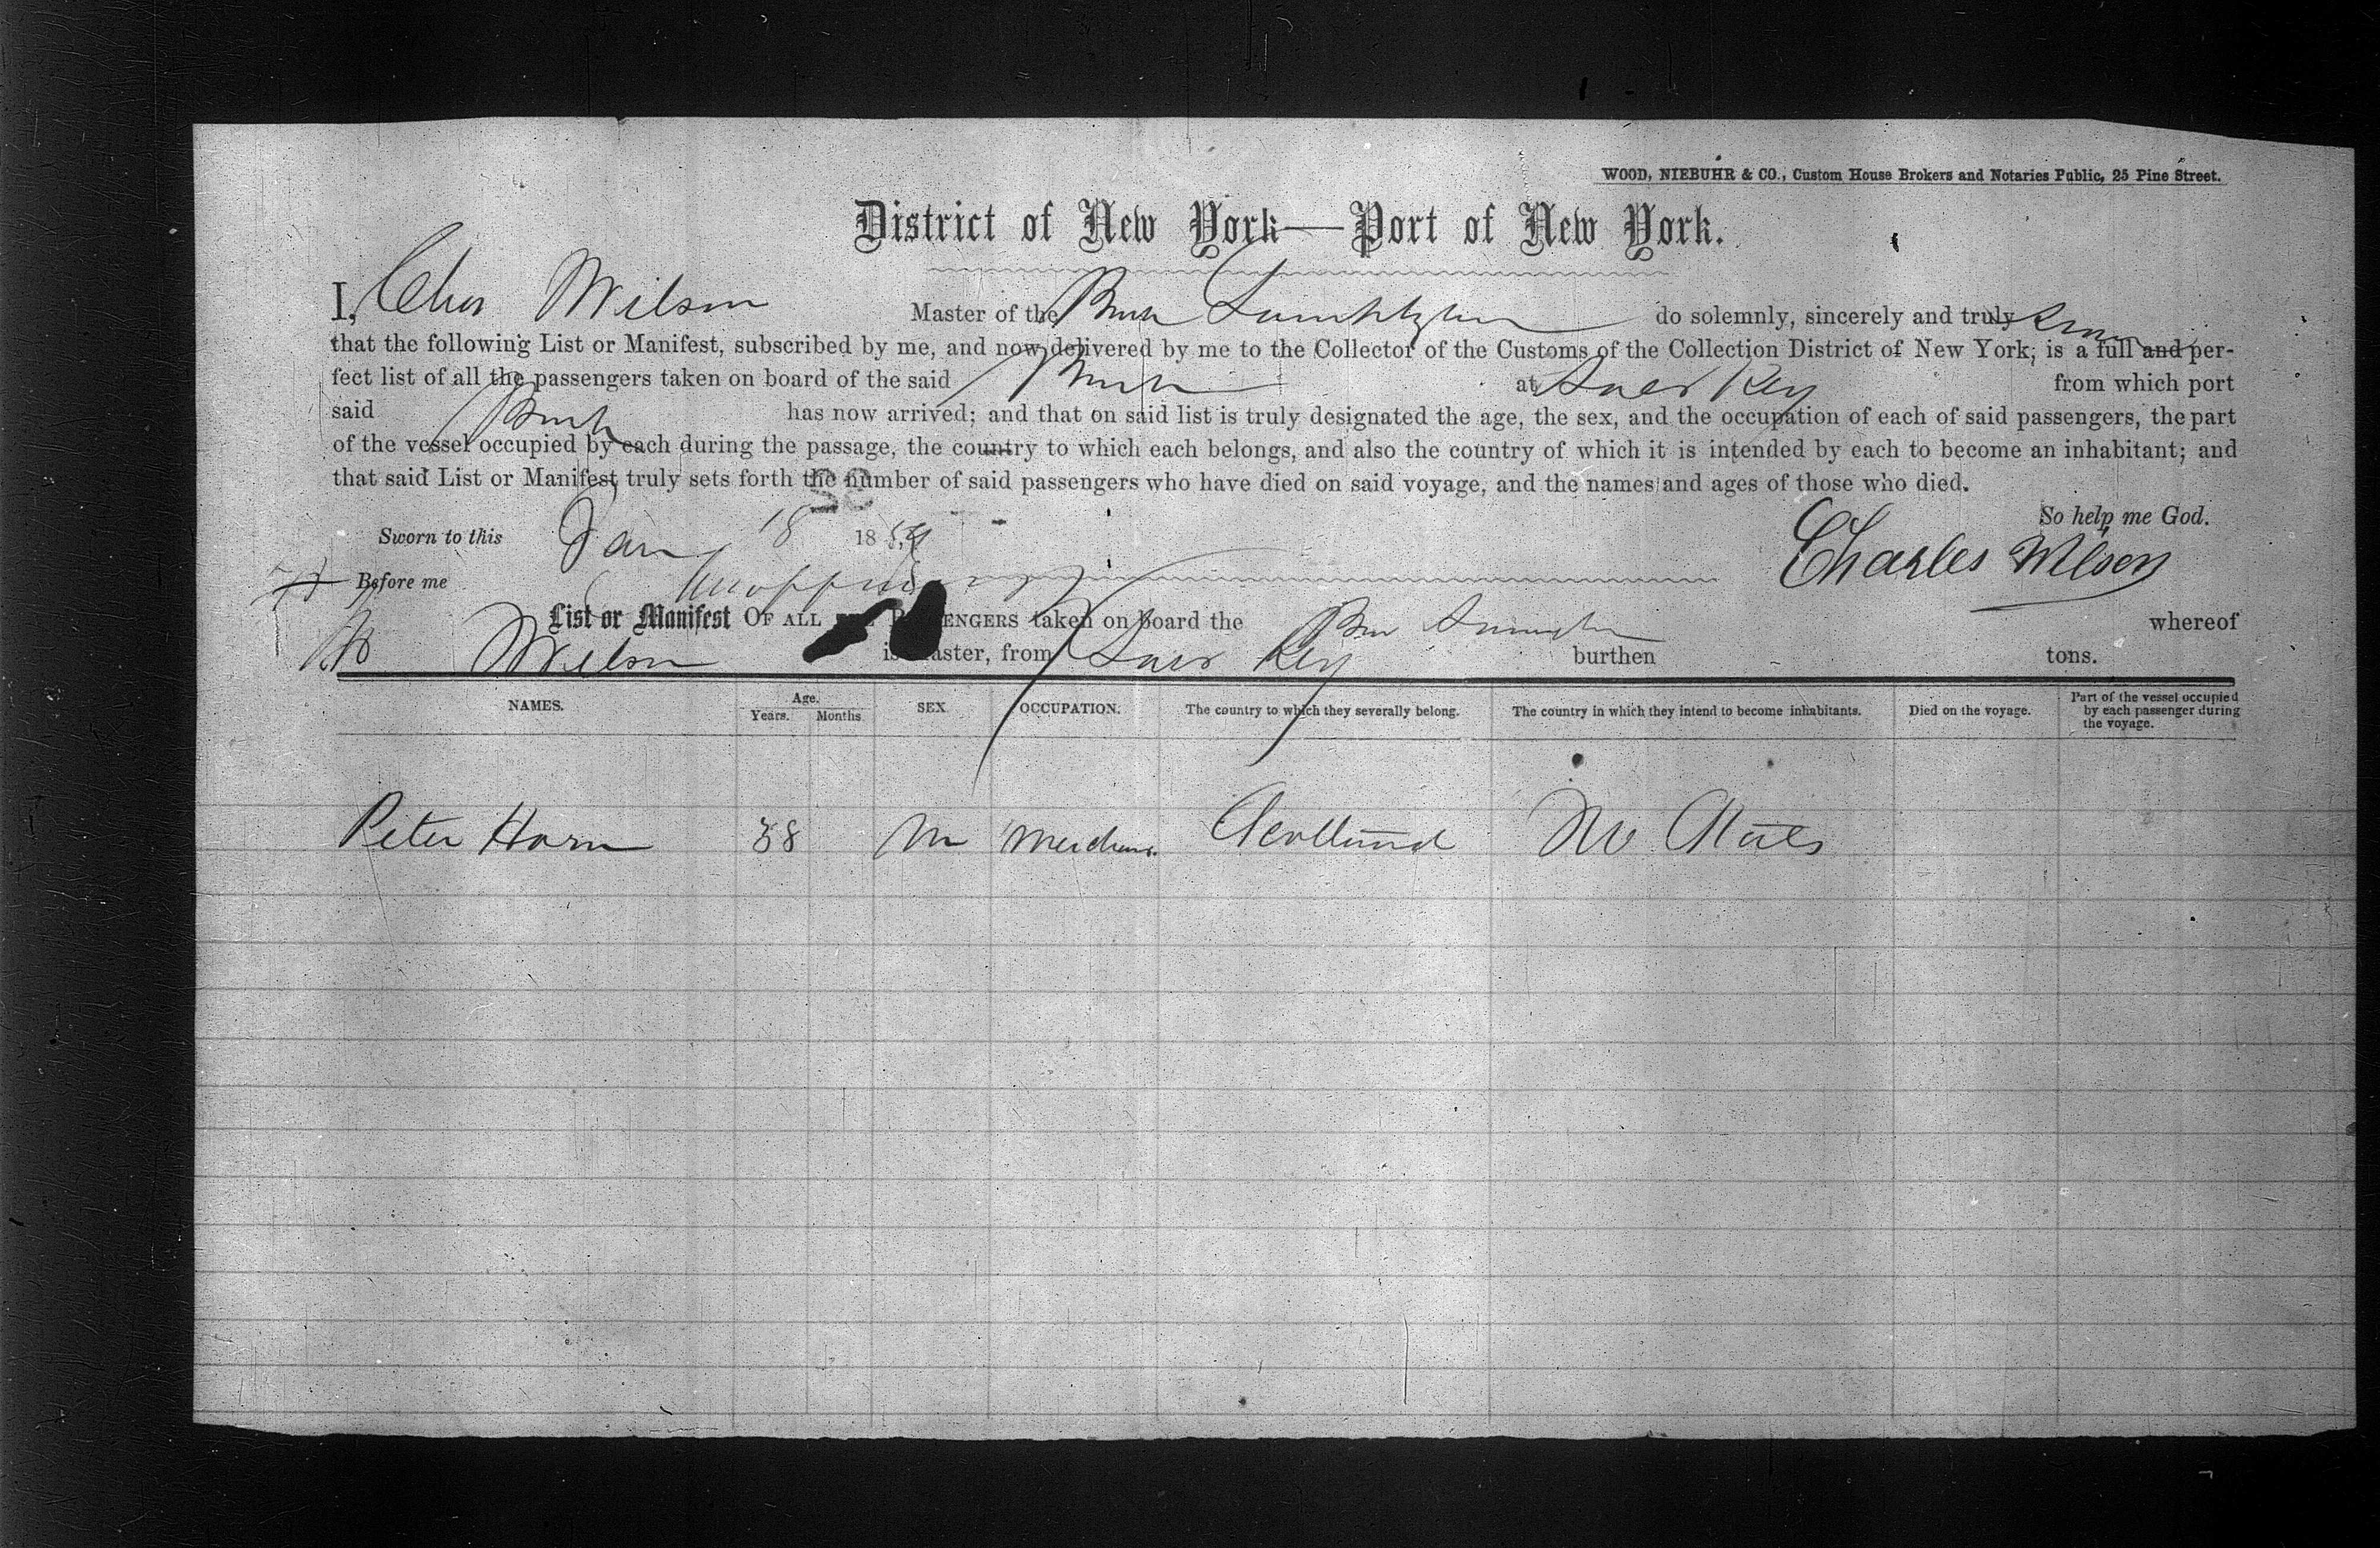 WOOD, NIEBUHR & CO., Custom House Brokers and Notaries Public, 25 Pine Street.
District of New York—Port of New York.
I, Chas Wilson Master of the do solemnly, sincerely and truly swear
that the following List or Manifest, subscribed by me, and now delivered by me to the Collector of the Customs of the Collection District of New York, is a full and per-
fect list of all the passengers taken on board of the said at Key from which port
said has now arrived; and that on said list is truly designated the age, the sex, and the occupation of each of said passengers, the part
of the vessel occupied by each during the passage, the country to which each belongs, and also the country of which it is intended by each to become an inhabitant; and
that said List or Manifest truly sets forth the number of said passengers who have died on said voyage, and the names and ages of those who died.
So help me God.
Sworn to this Jan 18 18
Charles Wilson
Before me
List or Manifest OF ALL THE PASSENGERS taken on board the whereof
Wilson is Master, from Key burthen tons.
NAMES. Age. Years. Months. SEX OCCUPATION. The country to which they severally belong. The country in which they intend to become inhabitants. Died on the voyage. Part of the vessel occupied by each passenger during the voyage.
Peter Horn 38 M Scotland States